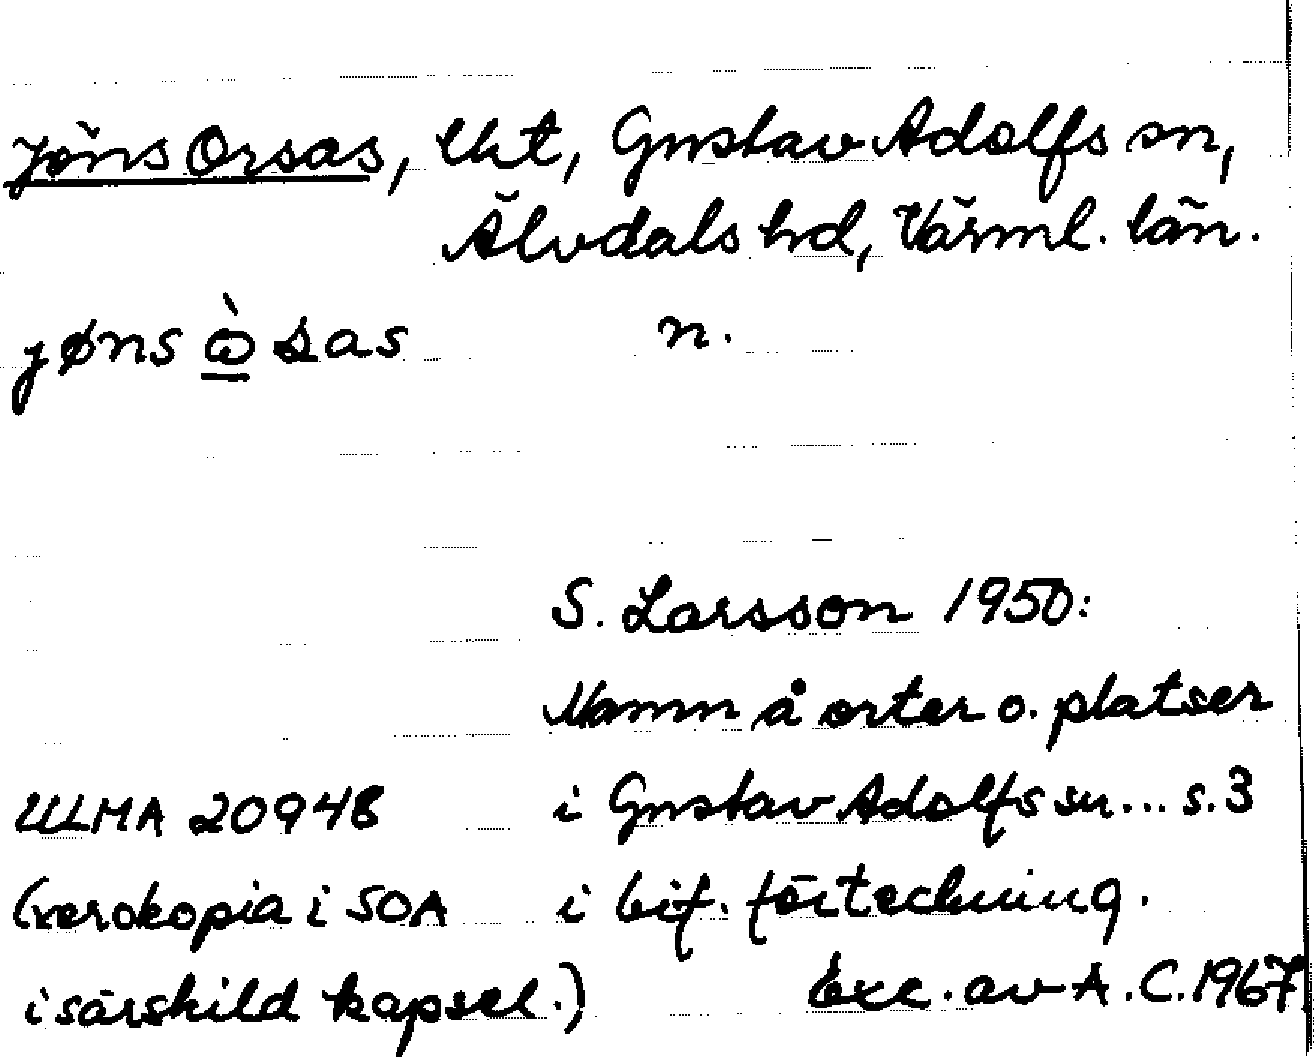 Jöns Orsas, lht, Gustav Adolfs sn,
Älvdals hd, Värml. län.
jøns ὼ sas n.
S. Larsson 1950:
Namn å orter o. platser
ULMA 20948 i Gustav Adolfs sn... s.3
(xerokopia i SOA i bif. förteckning.
i särskild kapsel.) Exc. av A.C. 1967